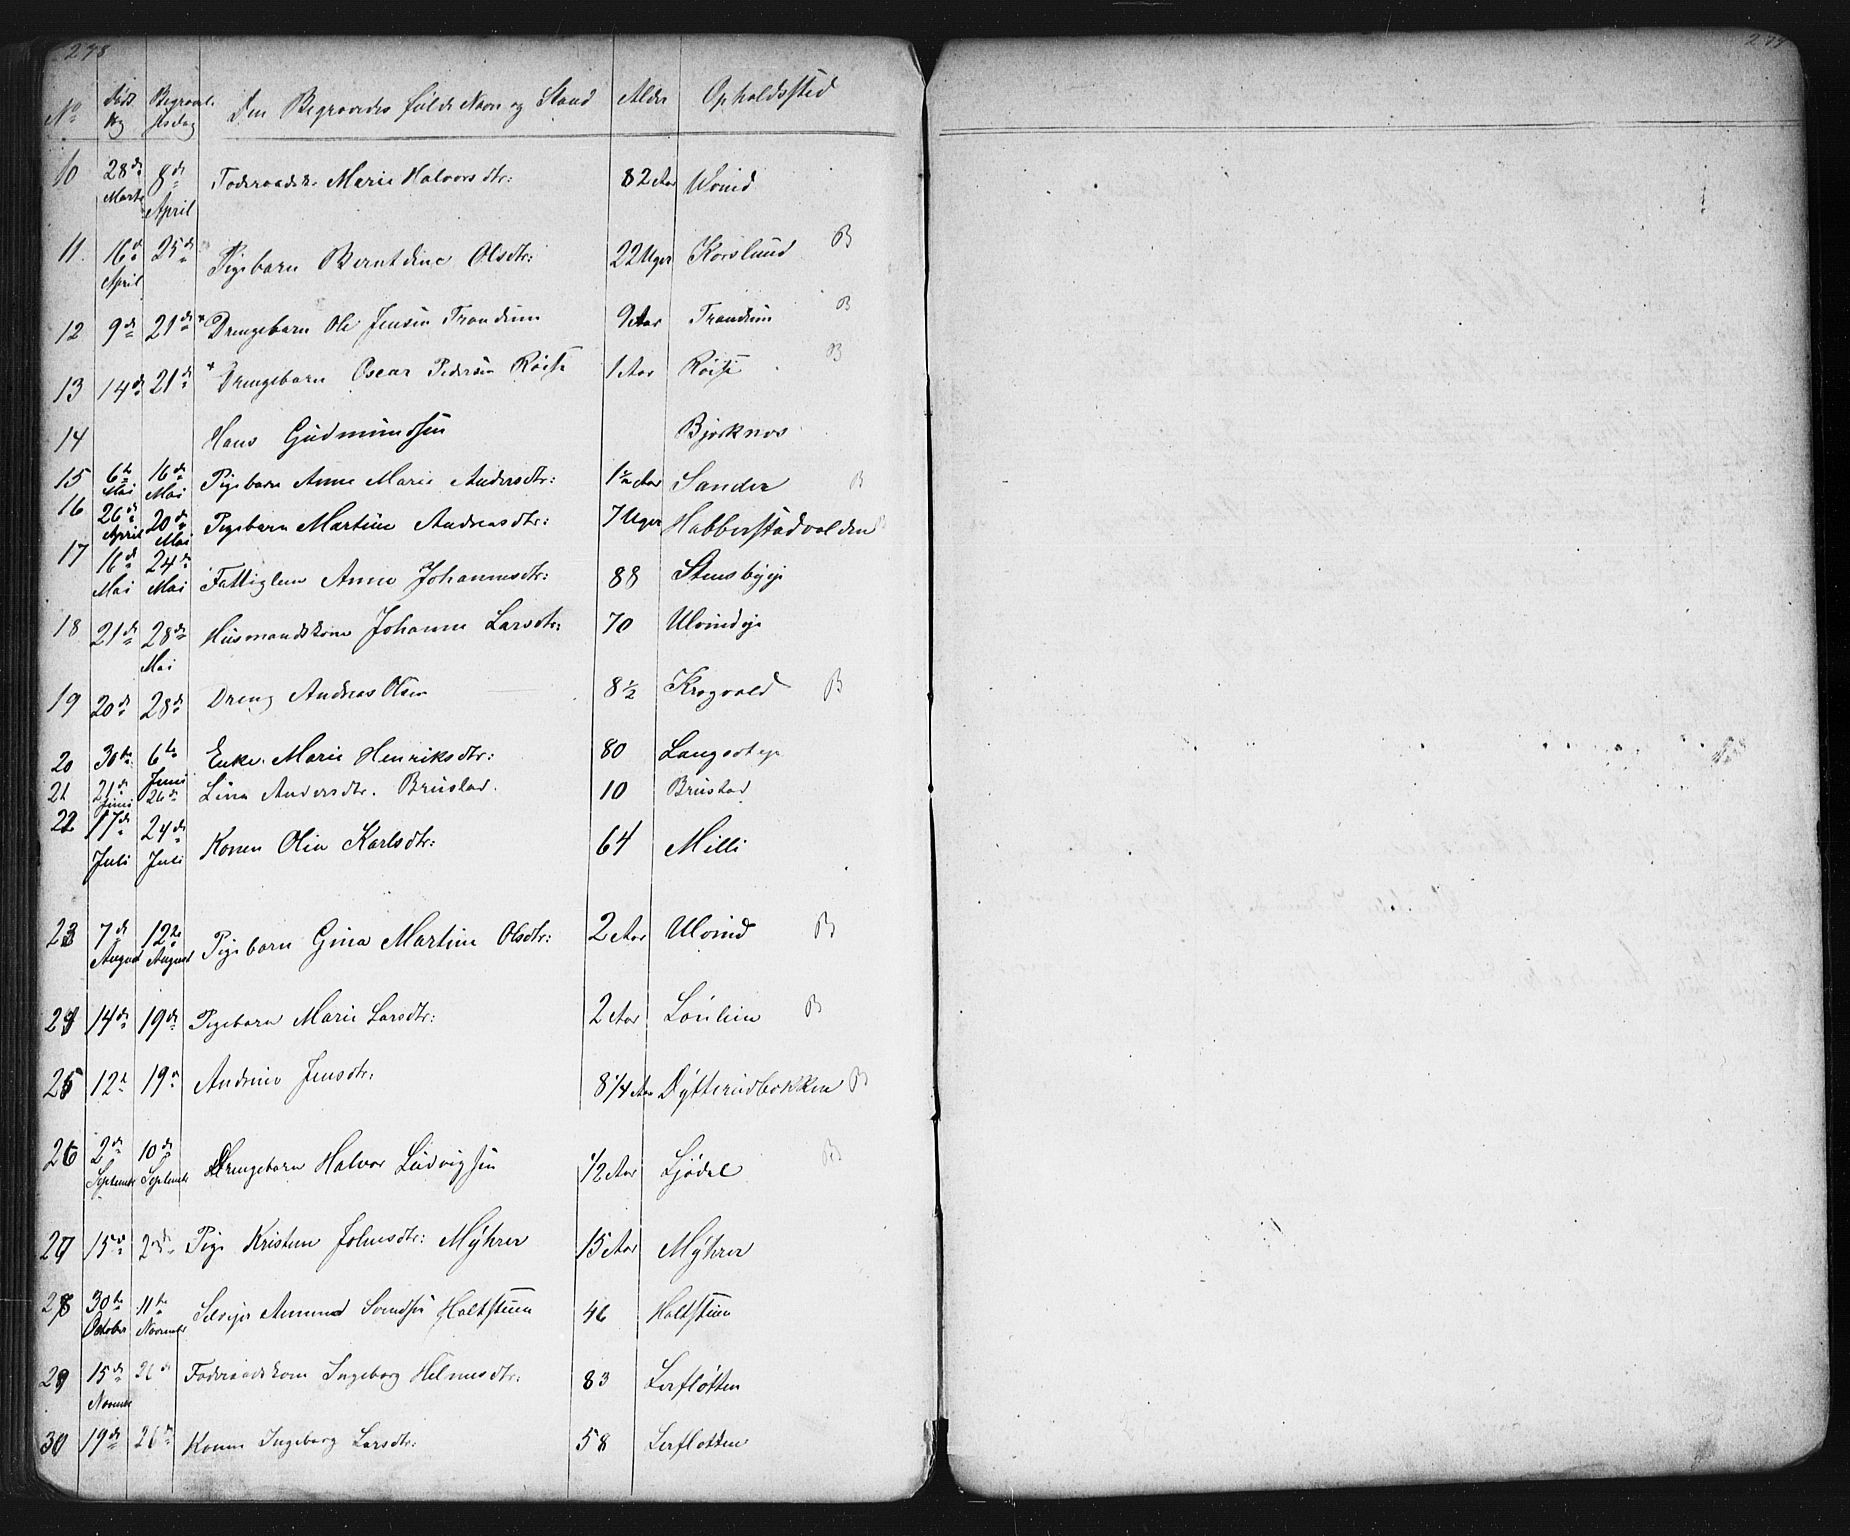 278
No Døds Dag Begravelsesdag Den Begravedes fulde Navn og Stand Alder Opholdssted
10 28de Marts 8de April Føderaadsk. Marie Halvorsdtr: 82 Aar Ulvind
11. 16de April 25de Pigebarn Berntdine Olsdtr: 22 Uger Korslund B
12 9de 21de * Drengebarn Ole Jensen Trandum 9 Aar Trandum B
13 14de 21de * Drengebarn Oscar Pedersen Røise 1 Aar Røise B
14 Hans Gudmundsen Bjerknes
15 6te Mai 16de Mai Pigebarn Anne Marie Andersdtr: 1½ Aar Sander B
16 26de April 20de Mai Pigebarn Martine Andreasdtr: 7 Uger Habberstadvolden B
17 16de Mai 24de Mai Fattiglem Anne Johannesdtr: 88 Stensbyeje
18 21de 28de Mai Husmandskone Johanne Larsdtr: 70 Ulvindeje
19 20de 28de Dreng Andreas Olsen 8½ Krogvold B
20 30te 6te Juni Enke Marie Henriksdtr: 80 Langseteje
21 21de Juni 26de Lina Andersdtr. Brustad. 10 Brustad
22 17de Juli 24de Juli Konen Olia Karlsdtr: 64 Milli
23 7de August 12te August Pigebarn Gina Martine Olsdtr: 2 Aar Ulvind B
24 14de 19de Pigebarn Marie Larsdtr: 2 Aar Lønlien B
25 12te 19de Andrine Jensdtr: 8¼ Aar Dytterudbakken B
26 2de September 10de September Drengebarn Halvor Ludvigsen ½ Aar Ljødal B
27 15de Pige Kristine Johnsdtr: Myhrer 15 Aar Myhrer
28 30te October 11te November Selveier Amund Svendsen Holtstuen 46 Holtstuen
29 15de November 26de Føderaadskone Ingeborg Helmesdtr: 83 Lerfløtten
30 19de 26de Konen Ingeborg Larsdtr: 58 Lerfløtten
279